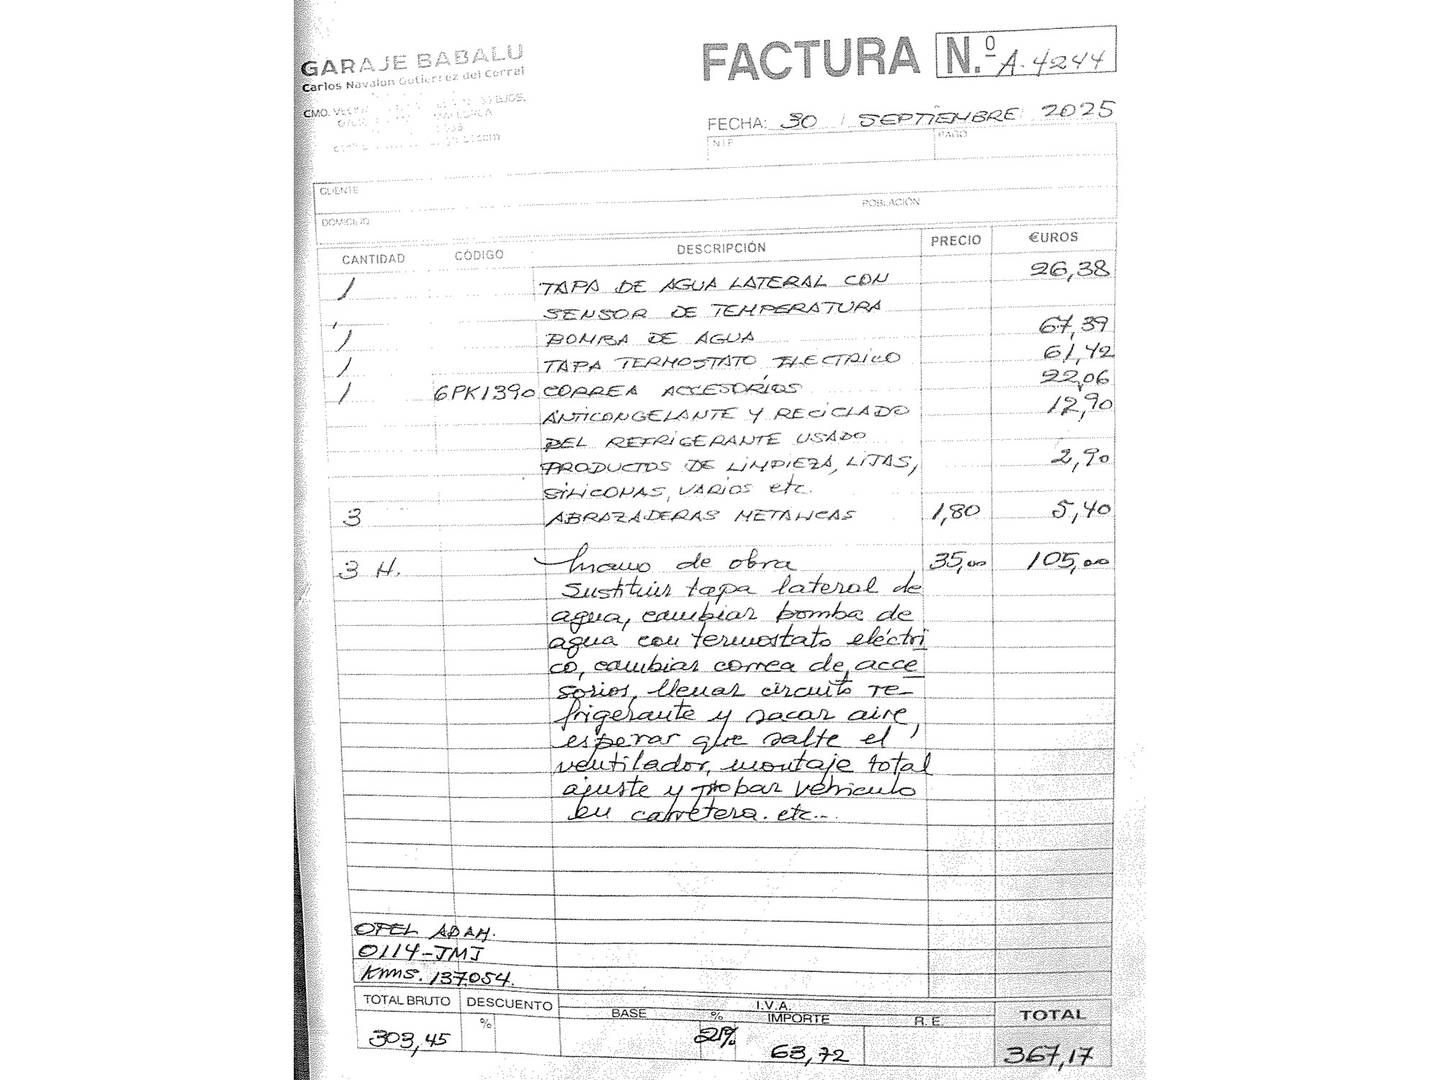 GARAJE BABALU
Carlos Navalon Gutierrez del Corral
CMO.
FACTURA N.º A-4244
FECHA: 30 / SEPTIEMBRE 2025
N.I.F. PAGO
CLIENTE
DOMICILIO POBLACIÓN
CANTIDAD CÓDIGO DESCRIPCIÓN PRECIO €UROS
1 TAPA DE AGUA LATERAL CON 26,38
SENSOR DE TEMPERATURA
1 BOMBA DE AGUA 67,39
1 TAPA TERMOSTATO ELECTRICO 61,42
1 6PK1390 CORREA ACCESORÍOS 22,06
ANTICONGELANTE Y RECICLADO 12,90
DEL REFRIGERANTE USADO
PRODUCTOS DE LIMPIEZA, LIJAS, 2,90
SILICONAS, VARIOS etc.
3 ABRAZADERAS METALICAS 1,80 5,40
3 H. mano de obra 35,00 105,00
Sustituir tapa lateral de
agua, cambiar bomba de
agua con termostato eléctri
co, cambiar correa de acce
sorios, llenar circuito re-
frigerante y sacar aire,
esperar que salte el
ventilador, montaje total
ajuste y probar vehiculo
en carretera. etc..
OPEL ADAM.
0114-JMJ
Kms. 137.054.
TOTAL BRUTO DESCUENTO I.V.A. TOTAL
% BASE % IMPORTE R.E.
303,45 21% 63,72 367,17